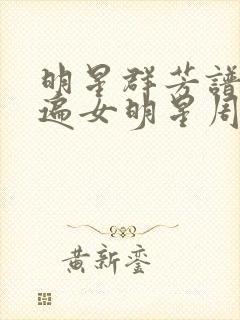 明星群芳譜
遍女明星周
黃新鑾